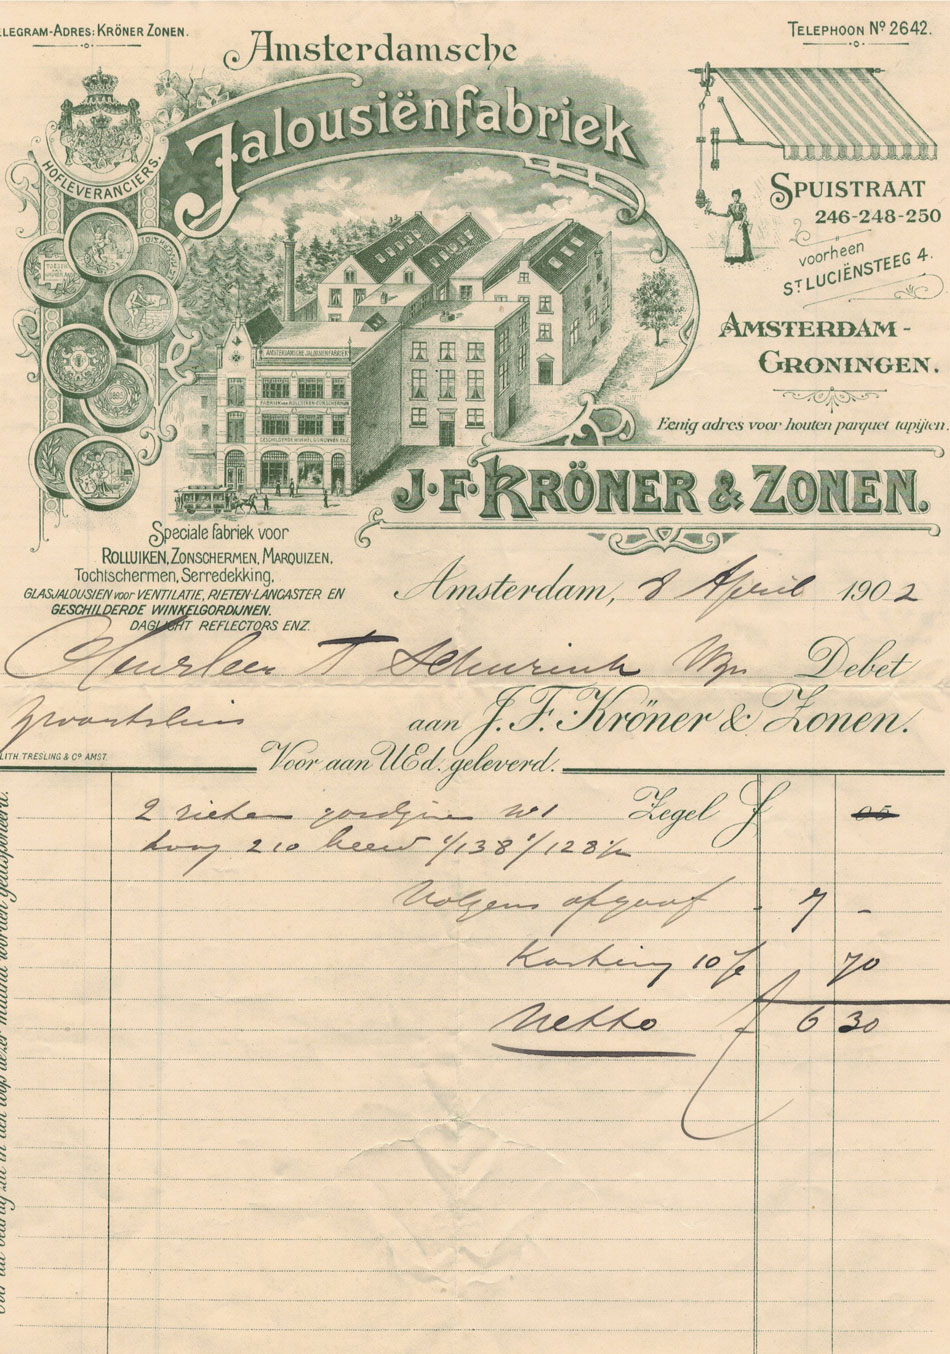 LEGRAM-ADRES: KRÖNER ZONEN.
TELEPHOON No 2642.
Amsterdamsche
Jalousiënfabriek
HOFLEVERANCIERS.
SPUISTRAAT
246-248-250
voorheen
ST LUCIËNSTEEG 4.
AMSTERDAM-
GRONINGEN.
Eenig adres voor houten parquet tapijten.
AMSTERDAMSCHE JALOUSIENFABRIEK
J.F. KRÖNER & ZONEN.
Speciale fabriek voor
ROLLUIKEN, ZONSCHERMEN, MARQUIZEN,
Tochtschermen, Serredekking,
GLASJALOUSIEN voor VENTILATIE, RIETEN-LANCASTER EN
GESCHILDERDE WINKELGORDIJNEN.
DAGLICHT REFLECTORS ENZ.
Amsterdam, 8 April 1902
Debet
aan J.F. Kröner & Zonen.
LITH. TRESLING & Co AMST.
Voor aan UEd. geleverd.
Zegel f 05
2
hoog 210 138 128
Volgens opgaaf 7 -
Korting 10% 70
Netto f 6 30